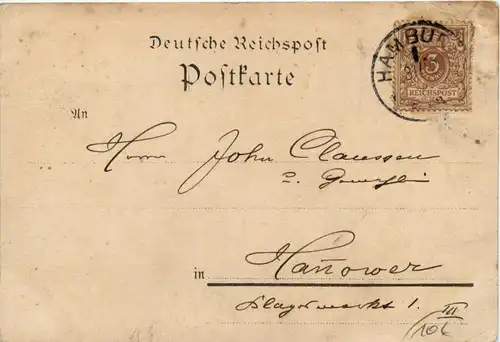 Deutsche Reichspost
Postkarte
HAMBU
1
3
REICHSPOST
An
Herrn John Claussen
in Hannower
1. III
106